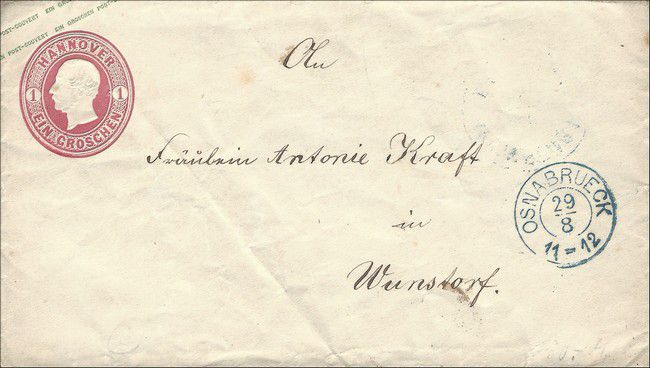 POST-COUVERT EIN GROSCHEN POST-COUVERT
EIN GROSCHEN POST-COUVERT EIN GROSCHEN POST-COU
HANNOVER
1 1
EIN GROSCHEN
An
Fräulein Antonie Kraft
in
Wunstorf.
OSNABRUECK
29
8
11-12